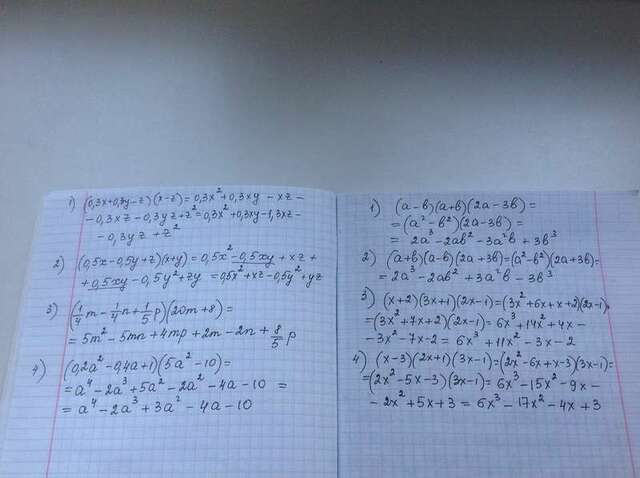 1) (0,3x+0,3y-z)(x-z)=0,3x²+0,3xy-xz-
-0,3xz-0,3yz+z²=0,3x²+0,3xy-1,3xz-
-0,3yz+z²
2) (0,5x-0,5y+z)(x+y)=0,5x²-0,5xy+xz+
+0,5xy-0,5y²+zy=0,5x²+xz-0,5y²+yz
3) (1/4m-1/4n+1/5p)(20m+8)=
=5m²-5mn+4mp+2m-2n+8/5p
4) (0,2a²-0,4a+1)(5a²-10)=
=a⁴-2a³+5a²-2a²-4a-10=
=a⁴-2a³+3a²-4a-10
1) (a-b)(a+b)(2a-3b)=
=(a²-b²)(2a-3b)=
=2a³-2ab²-3a²b+3b³
2) (a+b)(a-b)(2a+3b)=(a²-b²)(2a+3b)=
=2a³-2ab²+3a²b-3b³
3) (x+2)(3x+1)(2x-1)=(3x²+6x+x+2)(2x-1)=
=(3x²+7x+2)(2x-1)=6x³+14x²+4x-
-3x²-7x-2=6x³+11x²-3x-2
4) (x-3)(2x+1)(3x-1)=(2x²-6x+x-3)(3x-1)=
=(2x²-5x-3)(3x-1)=6x³-15x²-9x-
-2x²+5x+3=6x³-17x²-4x+3